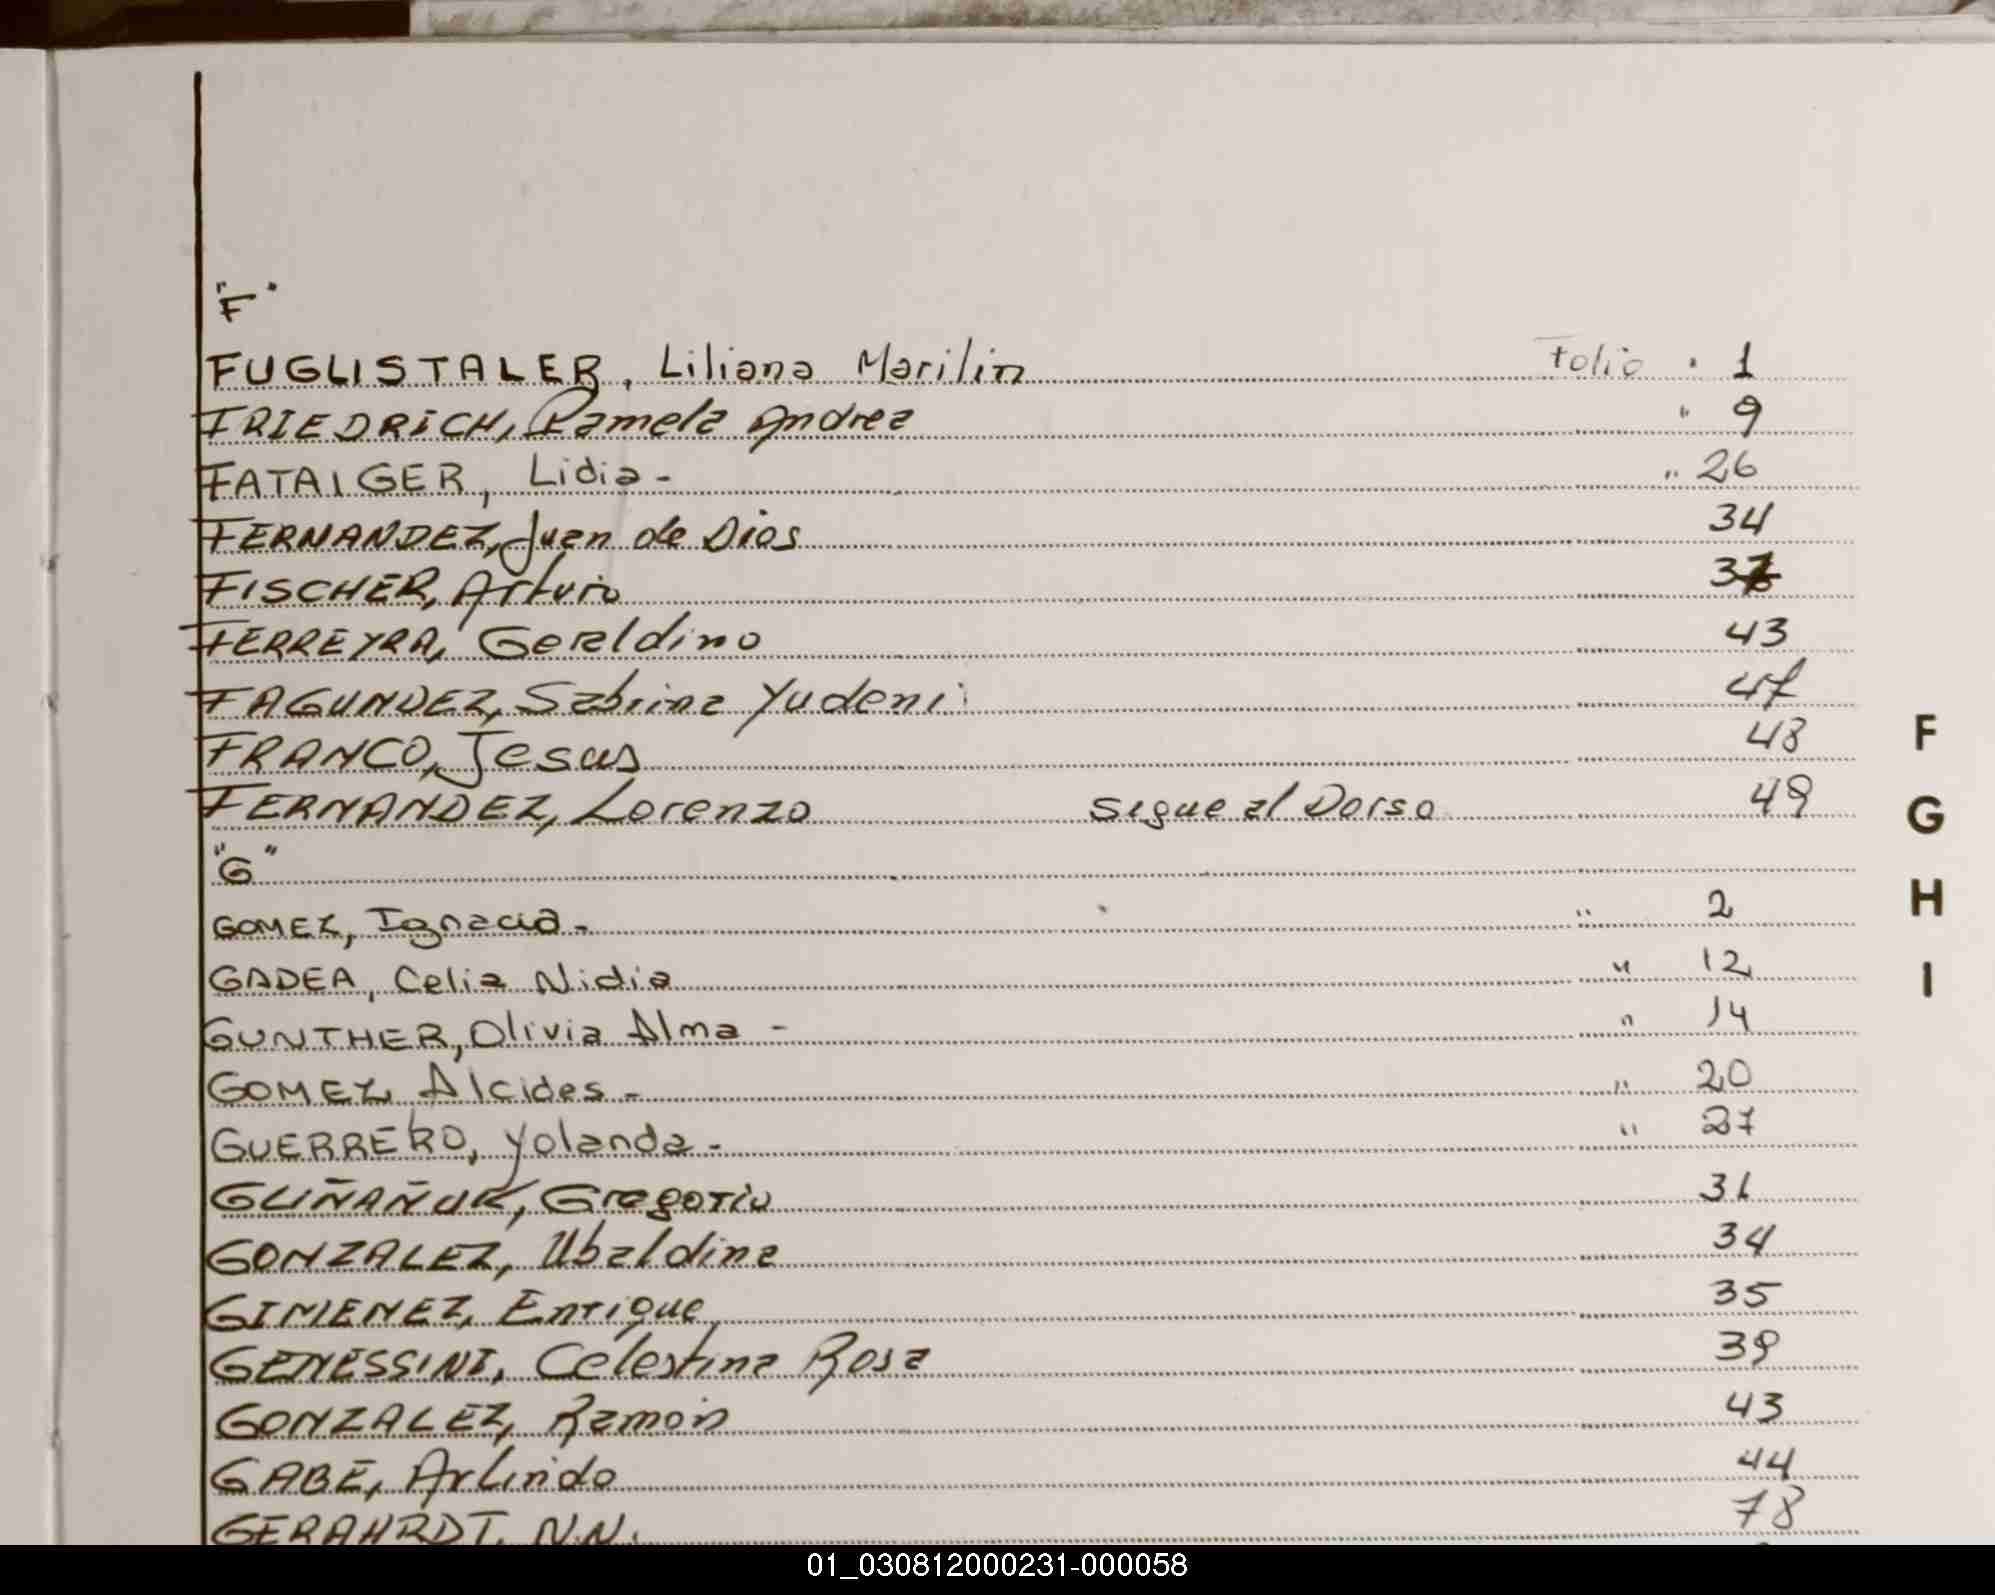 "F"
FUGLISTALER, Liliana Marilin Folio . 1
FRIEDRICH, Pamela Andrea " 9
FATAIGER, Lidia - " 26
FERNANDEZ, Juan de Dios 34
FISCHER, Arturo
FERREYRA, Geraldino 43
FAGUNDEZ, Sabrina Yudeni 47
FRANCO, Jesus 48
FERNANDEZ, Lorenzo Sigue al Dorso 49
"G"
GOMEZ, Ignacia - " 2
GADEA, Celia Nidia " 12
GUNTHER, Olivia Alma - " 14
GOMEZ, Alcides - " 20
GUERRERO, Yolanda - " 27
GUÑAÑUK, Gregorio 31
GONZALEZ, Ubaldina 34
GIMENEZ, Enrique 35
GENESSINI, Celestina Rosa 39
GONZALEZ, Ramón 43
GABE, Arlindo 44
GERAHRDT, N.N. 78
F
G
H
I
01_030812000231-000058